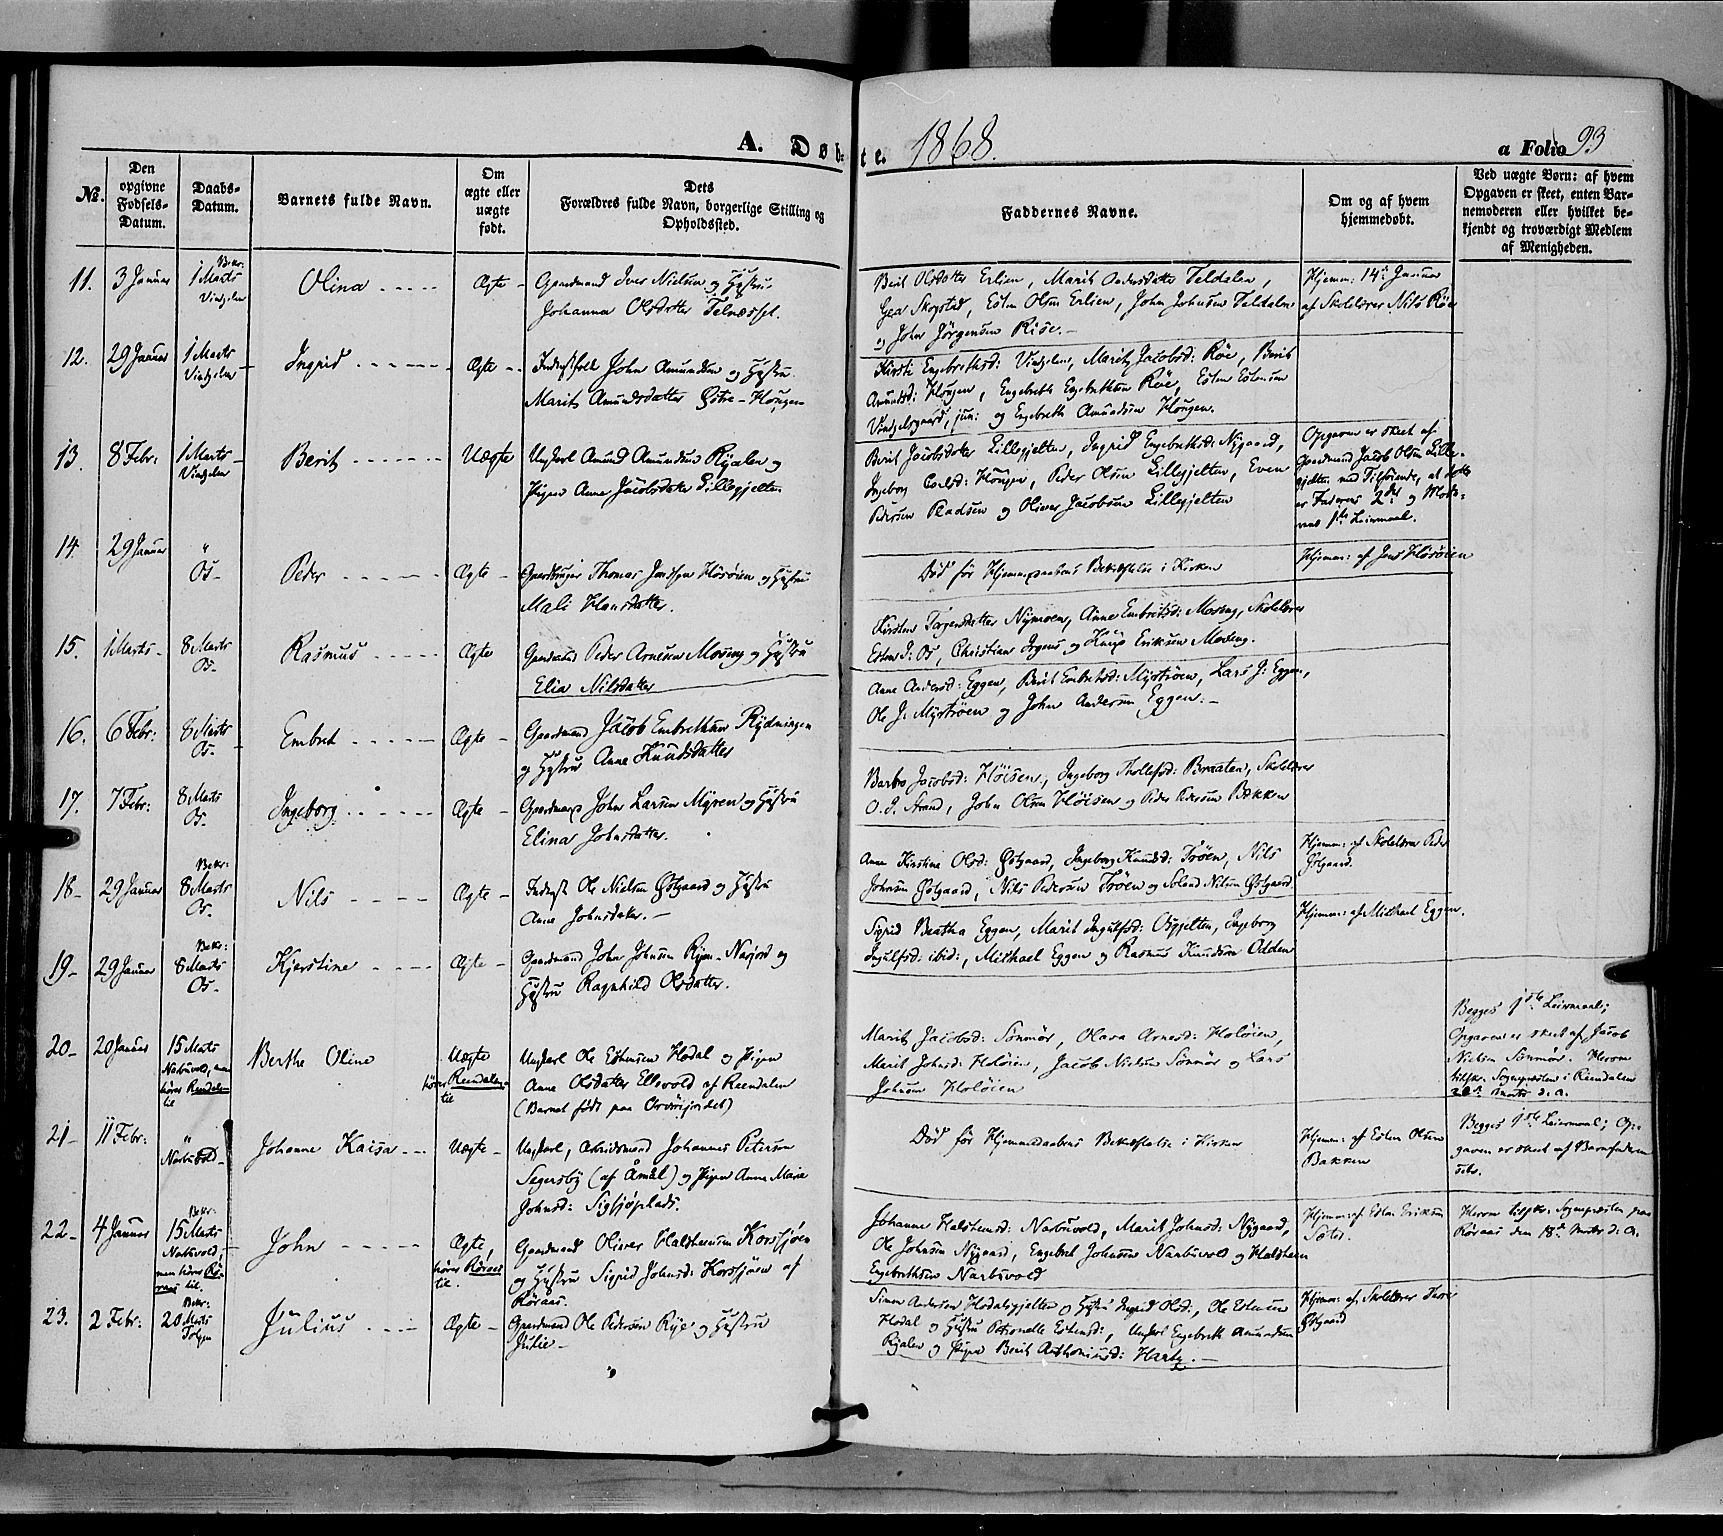 A. Døb-te. 1868. a Folio 93
№. Den opgivne Fødsels-Datum. Daabs-Datum. Barnets fulde Navn. Om ægte eller uægte født. Dets Forældres fulde Navn, borgerlige Stilling og Opholdssted. Faddernes Navne. Om og af hvem hjemmedøbt. Ved uægte Børn: af hvem Opgaven er skeet, enten Barnemoderen eller hvilket bekjendt og troværdigt Medlem af Menigheden.
11. 3 Januar Bekr: 1 Marts Vingelen Olina Ægte Gaardmand Iver Nielsen og Hustru
Johanna Olsdatter Telnæsset.
Berit Olsdatter Erlien, Marit Andersdatter Taldalen,
Skogstad, Esten Olsen Erlien, John Johnsen Taldalen
og John Jörgensen Riise.
Hjemm: 14de Januar
af Skolelærer Nils Röe
12. 29 Januar 1 Marts Vingelen Ingrid Ægte Inderstfolk John Amundsen og Hustru
Marit Amundsdatter Østre-Hougen
Kirsti Engebrethsd: Vingelen, Marit Jacobsd: Röe, Berit
Amundsd: Hougen, Engebreth Engebrethsen Röe, Esten Estensen
Vingelsgaard, jun: og Engebreth Amundsen Hougen.
13. 8 Febr: 1 Marts Vingelen Berit Uægte Ungkarl Amund Amundsen Ryalen og
Pigen Anne Jacobsdatter Lillegjelten
Berit Jacobsdatter Lillegjelten, Ingrid Engebrethsd: Nygaard,
Ingeborg Hougen, Peder Olsen Lillegjelten, Even
Pedersen og Oliver Jacobsen Lillegjelten
Opgaven er skeet af
Gaardmand Jacob Olsen Lille-
gjelten med Tilföiende, at dette
er Faderens 2det og Mode-
rens 1ste Leiermaal.
14. 29 Januar " Os Peder Ægte Gaardbruger Thomas Jensen Hösöien og Hustru
Mali Hansdatter.
Död för Hjemmedaabens Bekræftelse i Kirken
Hjemm: af Jens Hösöien
15. 1 Marts 8 Marts Os Rasmus Ægte Gaardmand Peder Arnesen Moseng og Hustru
Elia Nilsdatter
Kirsten Torgersdatter Nymoen, Anne Embretsd: Moseng, Skolelærer
Esten J: Os, Christian og Knut Eriksen Moseng.
16. 6 Febr: 8 Marts Os Embret Ægte Gaardmand Jacob Embrethsen Rydningen
og Hustru Anne Knudsdatter
Anne Andersd: Eggen, Berit Embretsd: Myströen, Lars J: Eggen,
Ole J: Myströen og John Andersen Eggen.
17. 7 Febr: 8 Marts Os. Ingeborg Ægte Gaardmand John Larsen Myren og Hustru
Elina Johnsdatter.
Barbro Jacobsd: Höisen, Ingeborg Thollefsd: Braaten, Skolelærer
O. J. Strand, John Olsen Höisen og Peder Pedersen Bakken
18. 29 Januar Bekr: 8 Marts Os. Nils Ægte Inderst Ole Nielsen Østgaard og Hustru
Anne Johnsdatter.
Anne Kirstine Olsd: Østgaard, Ingeborg Knudsd: Tröen, Nils
Johnsen Østgaard, Nils Pedersen Tröen og Nilsen Østgaard
Hjemm: af Skolelærer Peder
Østgaard.
19 29 Januar Bekr: 8 Marts Os Kjerstine Ægte Gaardmand John Johnsen Ryen-Narjord og
Hustru Ragnhild Olsdatter.
Sigrid Beatha Eggen, Marit Ingulfsd: Osgjelten, Ingeborg
Ingulfsd: ibid:, Michael Eggen og Rasmus Knudsen Odden
Hjemm: af Michael Eggen.
20 20 Januar 15 Marts Narbuvold, men hörer Reendalen til Berthe Oline Uægte hörer Reendalen til Ungkarl Ole Estensen Hodal og Pigen
Anne Olsdatter Ellevold af Reendalen
(Barnet födt paa )
Marit Jacobsd: Sömör, Olava Arnesd: Holöien,
Marit Johnsd: Holöien, Jacob Nielsen Sömör og Lars
Johnsen Holöien
Begges 1ste Leiermaal;
Opgaven er skeet af Jacob
Nielsen Sömör. Herom
tilskr. Sognepræsten i Reendalen
Marts d. A.
21 11 Febr: " Narbuvold Johanne Kaisa Uægte Ungkarl, Arbeidsmand Johannes Peterson
Segersby (af Åmål) og Pigen Anne Marie
Johnsd: Siksjöplads.
Död för Hjemmedaabens Bekræftelse i Kirken
Hjemm: af Esten Olsen
Bakken
Begges 1ste Leiermaal; Op-
gaven er skeet af Barnefaderen
selv.
22 4 Januar Bekr: 15 Marts Narbuvold, men hörer Röraas til. John Ægte, hörer Röraas til. Gaardmand Oliver Halstensen Korssjöen
og Hustru Sigrid Johnsd: Korssjöen af
Röraas.
Johanne Halstensd: Narbuvold, Marit Johnsd: Nygaard,
Ole Johnsen Nygaard, Engebret Johnsen Narbuvold og Halsten
Engebrethsen Narbuvold
Hjemm: af Esten Eriksen
Herom tilskr. Sognepræsten paa
Röraas den 18de Marts d: A.
23. 2 Febr: Bekr: 20 Marts Tolgen Julius Ægte Gaardmand Ole Pedersen Rye og Hustru
Julie
Simen Andersen Hodalsgjelten og Hustru Ingrid Olsd:, Ole Estensen
Hodal og Hustru Petronelle Estensd:, Ungkarl Engebreth Amundsen
Ryalen og Pigen Berit Anthoniusd: Hartz.
Hjemm: af Skolelærer
Østgaard